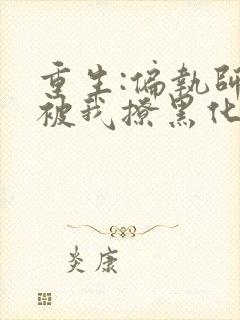 重生:偏执师
被我撩黑化
炎康